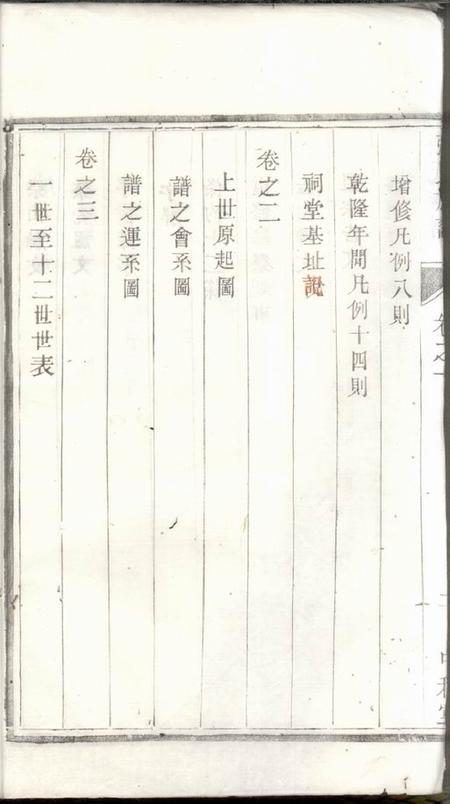 增修凡例八則
乾隆年間凡例十四則
祠堂基址記
卷之二
上世原起圖
譜之會系圖
譜之運系圖
卷之三
一世至十二世世表